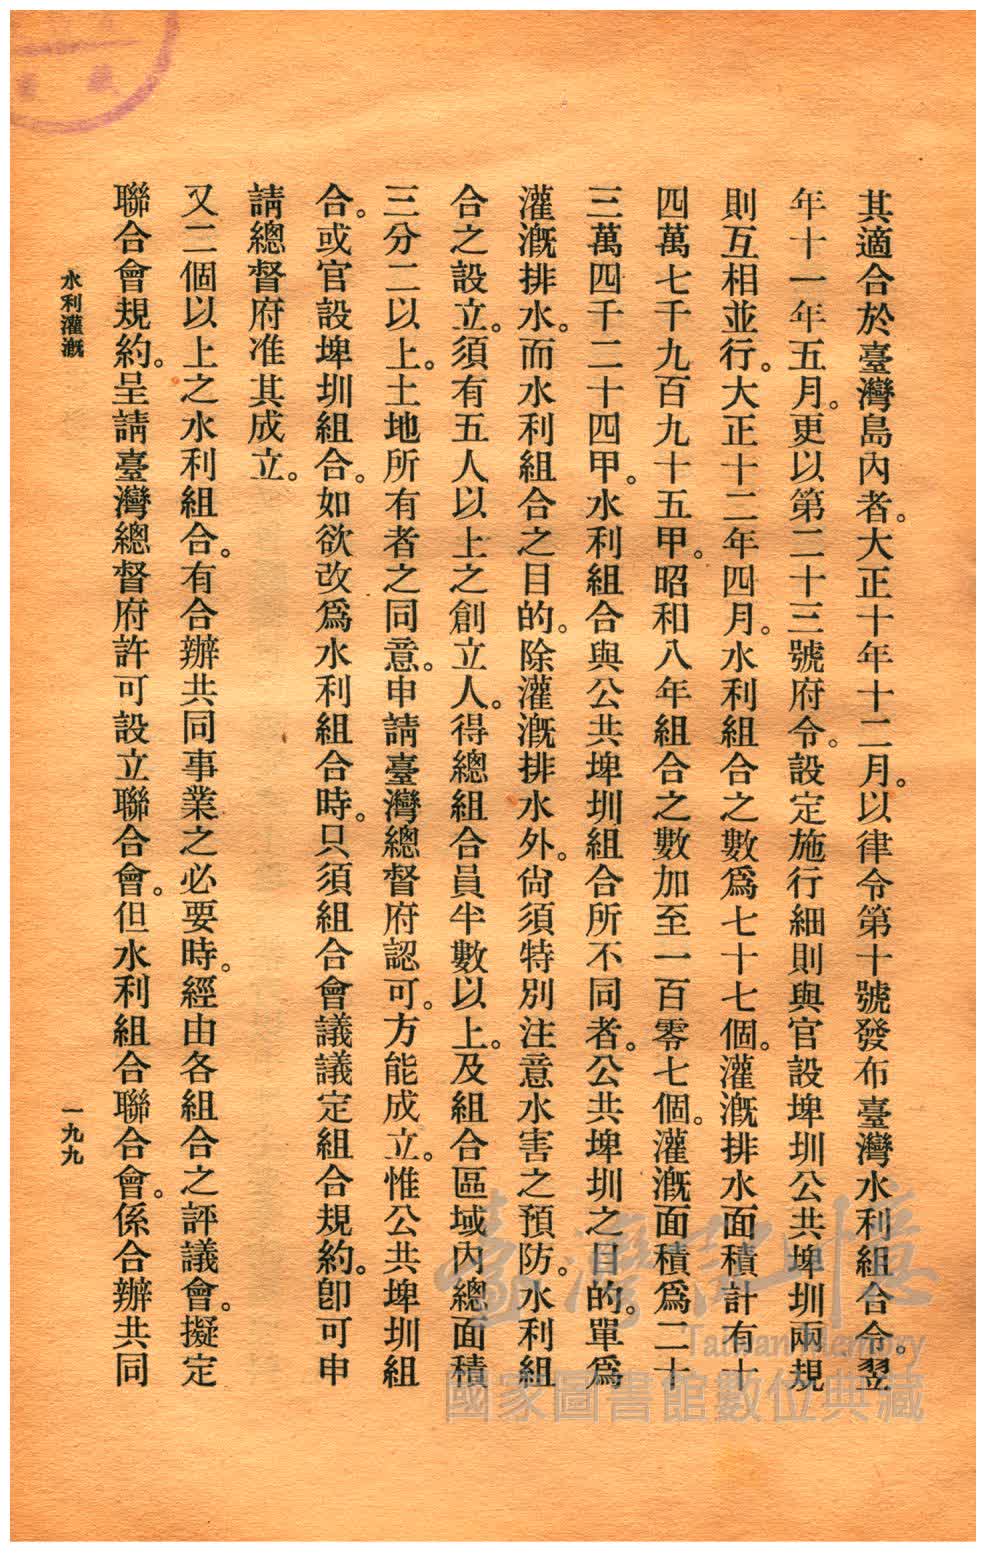 其適合於臺灣島內者。大正十年十二月。以律令第十號發布臺灣水利組合令。翌
年十一年五月。更以第二十三號府令。設定施行細則與官設埤圳公共埤圳兩規
則互相並行。大正十二年四月。水利組合之數爲七十七個。灌漑排水面積計有十
四萬七千九百九十五甲。昭和八年組合之數加至一百零七個。灌漑面積爲二十
三萬四千二十四甲。水利組合與公共埤圳組合所不同者。公共埤圳之目的。單爲
灌漑排水。而水利組合之目的。除灌漑排水外。尙須特別注意水害之預防。水利組
合之設立。須有五人以上之創立人。得總組合員半數以上。及組合區域內總面積
三分二以上。土地所有者之同意。申請臺灣總督府認可。方能成立。惟公共埤圳組
合。或官設埤圳組合。如欲改爲水利組合時。只須組合會議議定組合規約。卽可申
請總督府准其成立。
又二個以上之水利組合。有合辦共同事業之必要時。經由各組合之評議會。擬定
聯合會規約。呈請臺灣總督府許可設立聯合會。但水利組合聯合會。係合辦共同
水利灌漑
一九九
臺灣記憶
Taiwan Memory
國家圖書館數位典藏